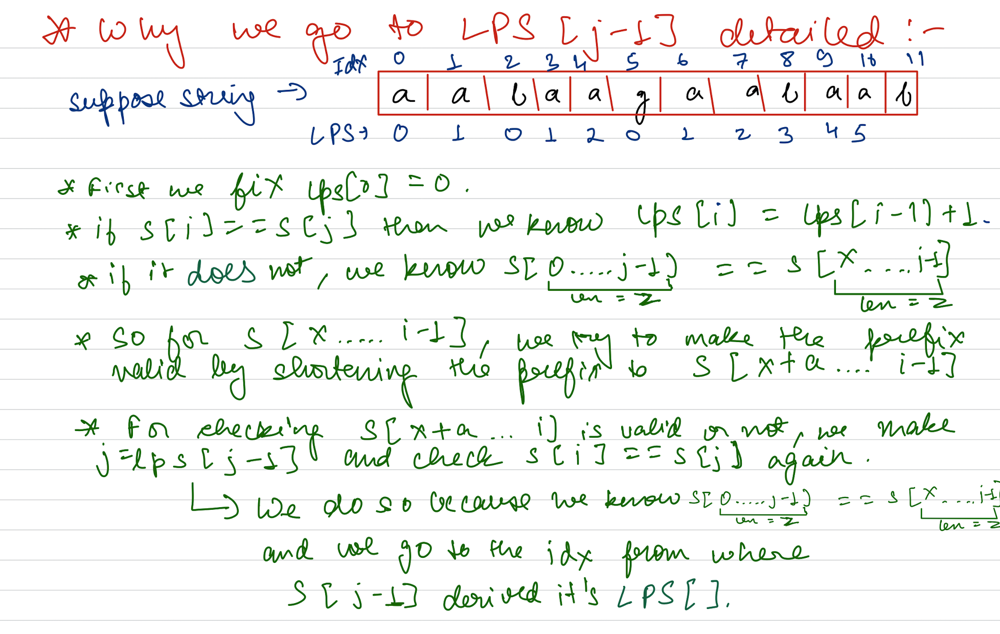 * Why we go to LPS [j-1] detailed :-
Idx 0 1 2 3 4 5 6 7 8 9 10 11
suppose string → a a b a a g a a b a a b
LPS→ 0 1 0 1 2 0 1 2 3 4 5
* First we fix lps[0] = 0.
* if s[i] == s[j] then we know lps[i] = lps[i-1]+1.
* if it does not, we know s[0.....j-1] == s[x.....i-1]
len = z len = z
* So for s[x..... i-1], we try to make the prefix
valid by shortening the prefix to s[x+a .... i-1]
* For checking s[x+a... i] is valid or not, we make
j=lps[j-1] and check s[i]==s[j] again.
↳ We do so because we know s[0.....j-1] == s[x....i-1]
len = z len = z
and we go to the idx from where
s[j-1] derived it's LPS[].